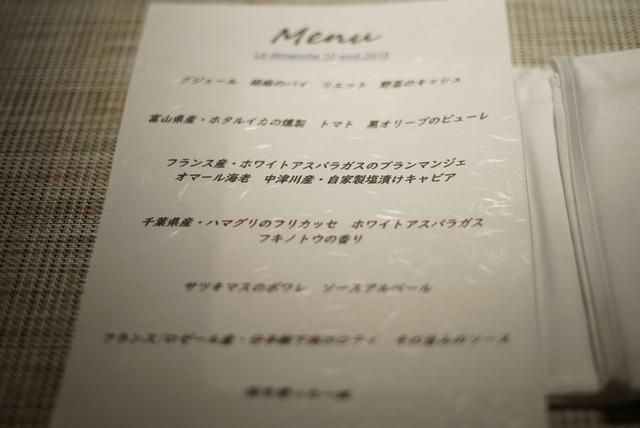 Menu
Le dimanche avril 2018
グジェール 胡麻のパイ リエット 野菜のキッシュ
富山県産・ホタルイカの燻製 トマト 黒オリーブのピューレ
フランス産・ホワイトアスパラガスのブランマンジェ
オマール海老 中津川産・自家製塩漬けキャビア
千葉県産・ハマグリのフリカッセ ホワイトアスパラガス
フキノトウの香り
サツキマスのポワレ ソースアルベール
フランス/ロゼール産・ のロティ そのソース